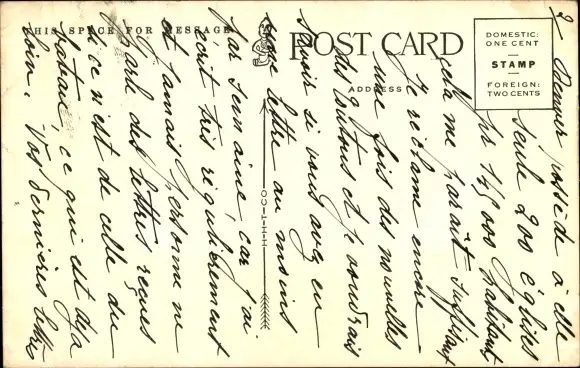 THIS SPACE FOR MESSAGE
POST CARD
ADDRESS
DOMESTIC:
ONE CENT
STAMP
FOREIGN:
TWO CENTS
H-H-T-CO
2 Denver possède à elle
seule 200 églises
pr 145000 habitants
cela me paraît suffisant
Je réclame encore
une fois des nouvelles
des Dutous et je voudrais
savoir si vous avez eu
une lettre au moins
par semaine, car j'ai
écrit très régulièrement
et jamais personne ne
parle des lettres reçues
si ce n'est de celle du
bateau, ce qui est déjà
loin. Vos dernières lettres